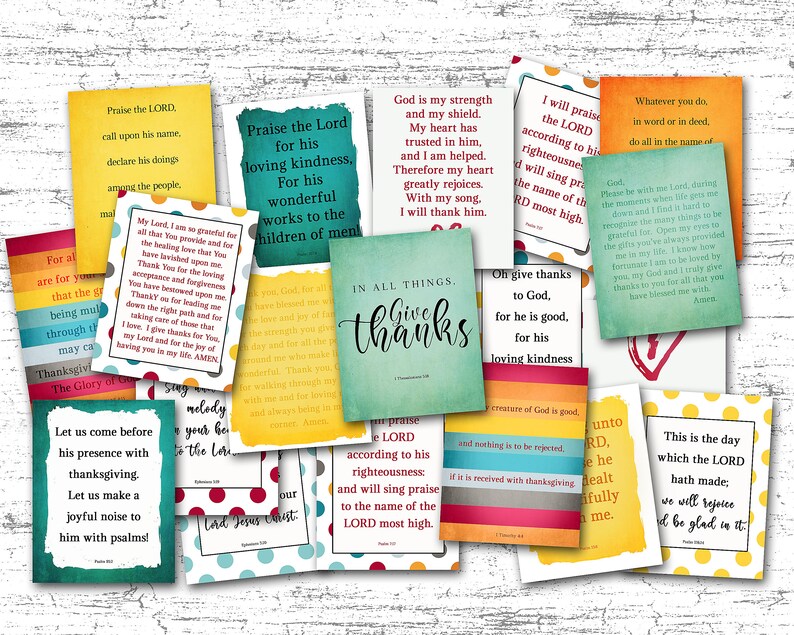 Praise the LORD,
call upon his name,
declare his doings
among the people,
Praise the Lord
for his
loving kindness,
For his
wonderful
works to the
children of men
God is my strength
and my shield.
My heart has
trusted in him,
and I am helped.
Therefore my heart
greatly rejoices.
With my song,
I will thank him.
I will praise
the LORD
according to his
righteousness:
and will sing praise
to the name of the
LORD most high.
Psalm 7:17
Whatever you do,
in word or in deed,
do all in the name of
God,
Please be with me Lord, during
the moments when life gets me
down and I find it hard to
recognize the many things to be
grateful for. Open my eyes to
the gifts you've always provided
me in my life. I know how
fortunate I am to be loved by
you, my God and I truly give
thanks to you for all that you
have blessed me with.
Amen.
For all
are for your
that the gr
being mul
through th
may ca
Thanksgivin
The Glory of Go
My Lord, I am so grateful for
all that You provide and for
the healing love that You
have lavished upon me.
Thank You for the loving
acceptance and forgiveness
You have bestowed upon me.
ThankY ou for leading me
down the right path and for
taking care of those that
I love. I give thanks for You,
my Lord and for the joy of
having you in my life. AMEN.
you, God, for all
have blessed me with
love and joy of
me who make
Thank you,
for walking through my
with me and for loving
and always being in
corner. Amen.
IN ALL THINGS,
Give
thanks
1 Thessalonians 5:18
Oh give thanks
to God,
for he is good,
for his
loving kindness
Sing
melody
in your hea
to the Lord
Ephesians 5:19
our
Lord Jesus Christ.
Ephesians 5:20
Let us come before
his presence with
thanksgiving.
Let us make a
joyful noise to
him with psalms!
Psalm 95:2
will praise
the LORD
according to his
righteousness:
and will sing praise
to the name of the
LORD most high.
Psalm 7:17
y creature of God is good,
and nothing is to be rejected,
if it is received with thanksgiving.
1 Timothy 4:4
unto
RD,
se he
dealt
ifully
h me.
This is the day
which the LORD
hath made;
we will rejoice
nd be glad in it.
Psalm 118:24